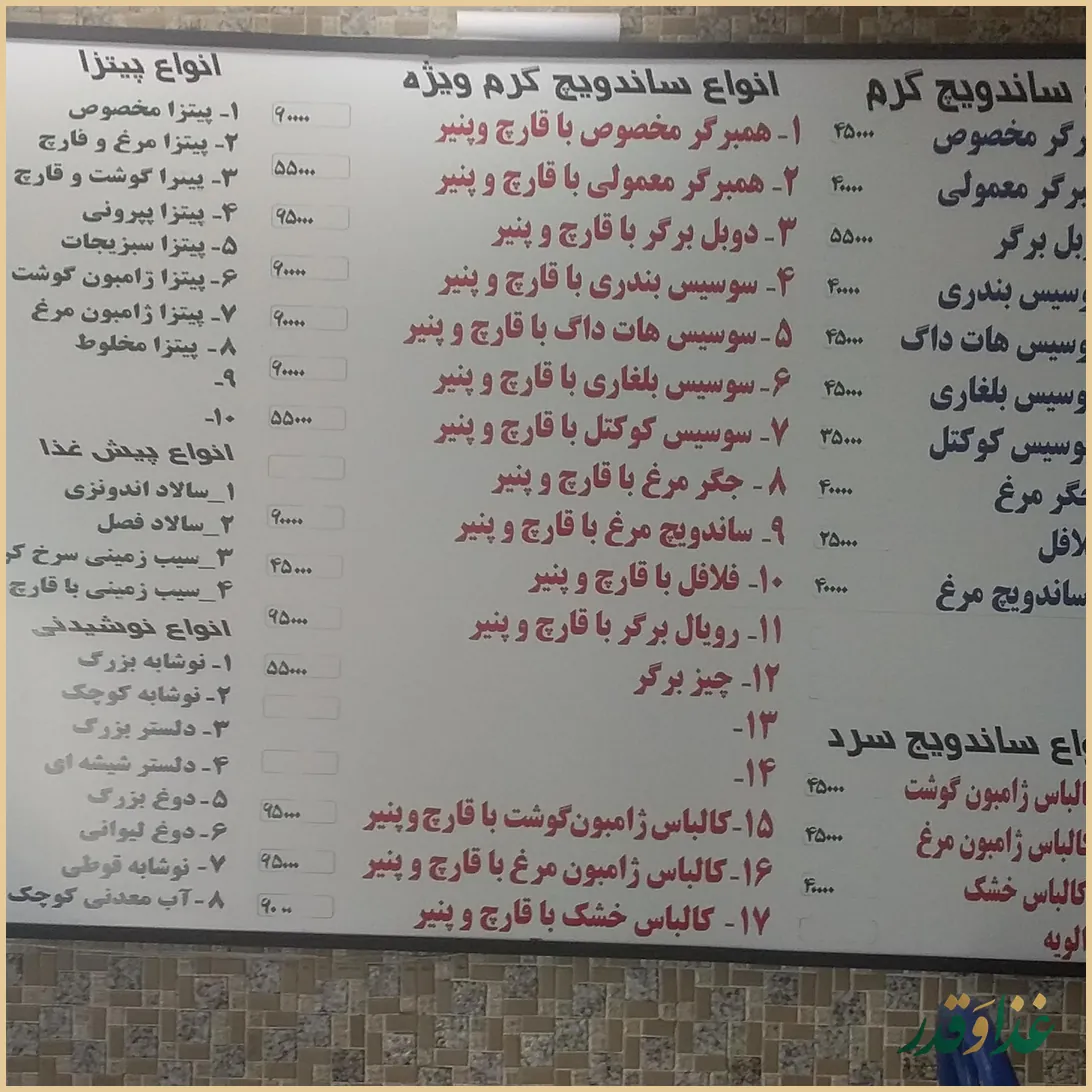 ساندویچ گرم
رگر مخصوص ۴۵۰۰۰۰
برگر معمولی ۴۰۰۰۰۰
بل برگر ۵۵۰۰۰۰
وسیس بندری ۴۰۰۰۰۰
وسیس هات داگ ۴۵۰۰۰۰
وسیس بلغاری ۴۵۰۰۰۰
وسیس کوکتل ۳۵۰۰۰۰
جگر مرغ ۴۰۰۰۰۰
لافل ۲۵۰۰۰۰
ساندویچ مرغ ۴۰۰۰۰۰
واع ساندویچ سرد
کالباس ژامبون گوشت ۴۵۰۰۰۰
کالباس ژامبون مرغ ۴۵۰۰۰۰
کالباس خشک ۴۰۰۰۰۰
الویه
انواع ساندویچ گرم ویژه
۱- همبرگر مخصوص با قارچ وپنیر ۹۰۰۰۰۰
۲- همبرگر معمولی با قارچ و پنیر ۵۵۰۰۰۰
۳- دوبل برگر با قارچ و پنیر ۹۵۰۰۰۰
۴- سوسیس بندری با قارچ و پنیر ۹۰۰۰۰۰
۵- سوسیس هات داگ با قارچ و پنیر ۹۰۰۰۰۰
۶- سوسیس بلغاری با قارچ و پنیر ۹۰۰۰۰۰
۷- سوسیس کوکتل با قارچ و پنیر ۵۵۰۰۰۰
۸- جگر مرغ با قارچ و پنیر
۹- ساندویچ مرغ با قارچ و پنیر ۹۰۰۰۰۰
۱۰- فلافل با قارچ و پنیر ۴۵۰۰۰۰
۱۱- رویال برگر با قارچ و پنیر ۹۵۰۰۰۰
۱۲- چیز برگر ۵۵۰۰۰۰
۱۳-
۱۴-
۱۵-کالباس ژامبون گوشت با قارچ وپنیر ۹۵۰۰۰۰
۱۶-کالباس ژامبون مرغ با قارچ و پنیر ۹۵۰۰۰۰
۱۷- کالباس خشک با قارچ و پنیر
انواع پیتزا
۱- پیتزا مخصوص
۲- پیتزا مرغ و قارچ
۳- پیتزا گوشت و قارچ
۴- پیتزا پپرونی
۵- پیتزا سبزیجات
۶- پیتزا ژامبون گوشت
۷- پیتزا ژامبون مرغ
۸- پیتزا مخلوط
۹-
۱۰-
انواع پیش غذا
۱_سالاد اندونزی
۲_سالاد فصل
۳_سیب زمینی سرخ کر
۴_سیب زمینی با قارچ
انواع نوشیدنی
۱- نوشابه بزرگ
۲- نوشابه کوچک
۳- دلستر بزرگ
۴- دلستر شیشه ای
۵- دوغ بزرگ
۶- دوغ لیوانی
۷- نوشابه قوطی
۸- آب معدنی کوچک
غذاوقدر